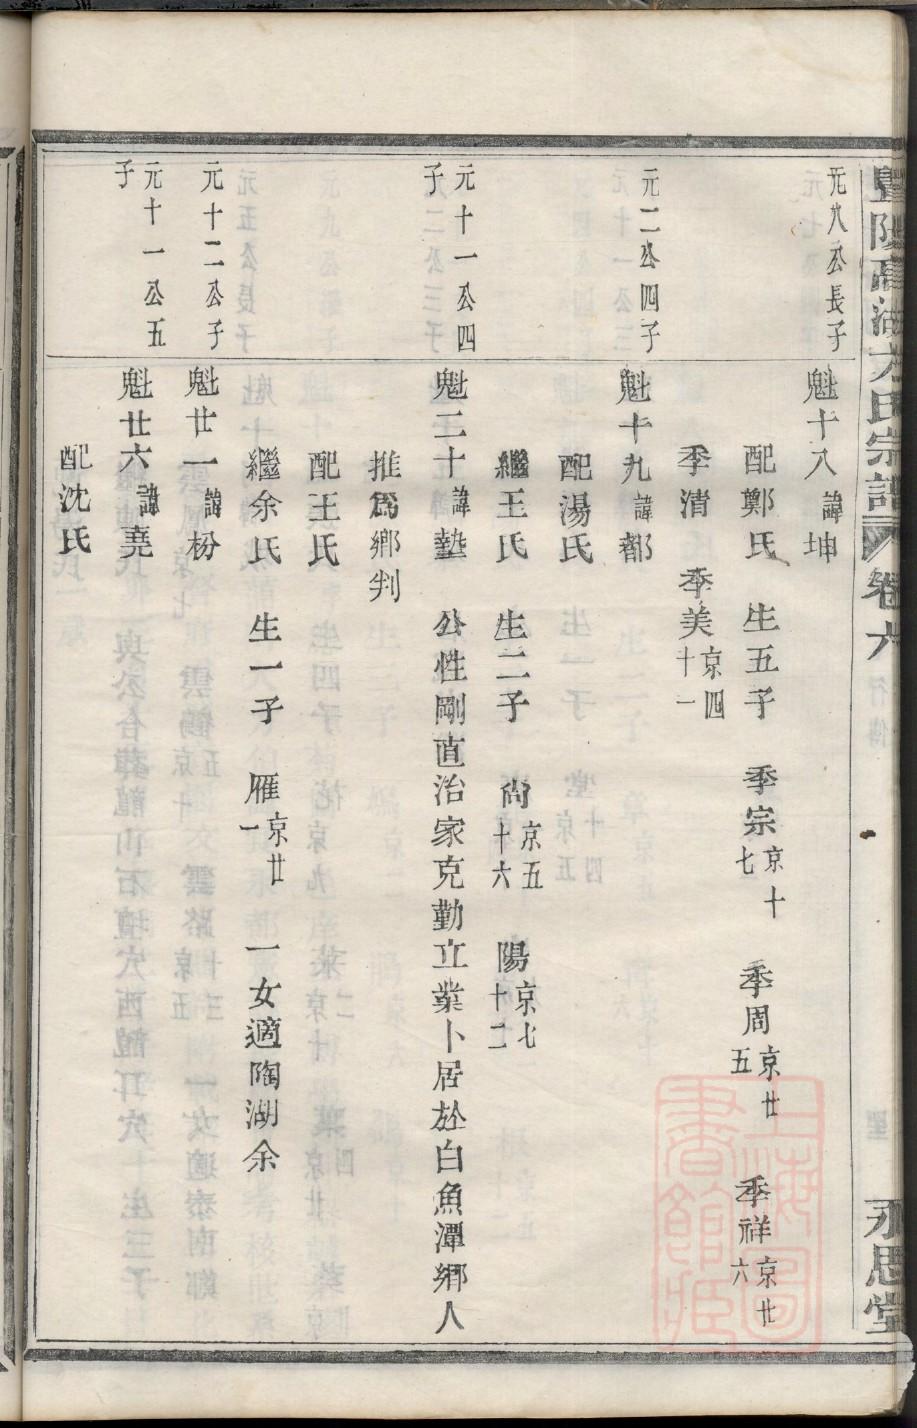 暨陽高湖方氏宗譜 卷六 永思堂
元八公長子
魁十八諱坤
配鄭氏 生五子 季宗京十七 季周京廿五 季祥京廿六
季清 季美京四十一
元二公四子
魁十九諱都
配湯氏
繼王氏 生二子 尙京五十六 陽京七十二
元十一公四子
魁二十諱墊 公性剛直治家克勤立業卜居於白魚潭鄉人
推爲鄉判
配王氏
繼余氏 生一子 雁京廿一 一女適陶湖余
元十二公子
魁廿一諱枌
元十一公五子
魁廿六諱堯
配沈氏